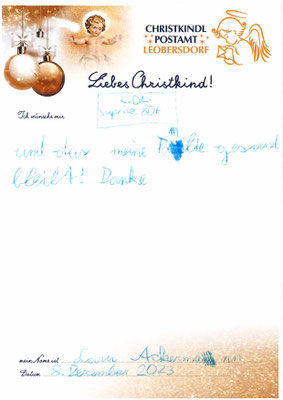 CHRISTKINDL
POSTAMT
LEOBERSDORF
Liebes Christkind!
L.O.L.
Ich wünsche mir
und das meine Familie gesund
bleibt! Danke
mein Name ist Ackermann
Datum 8. Dezember 2023